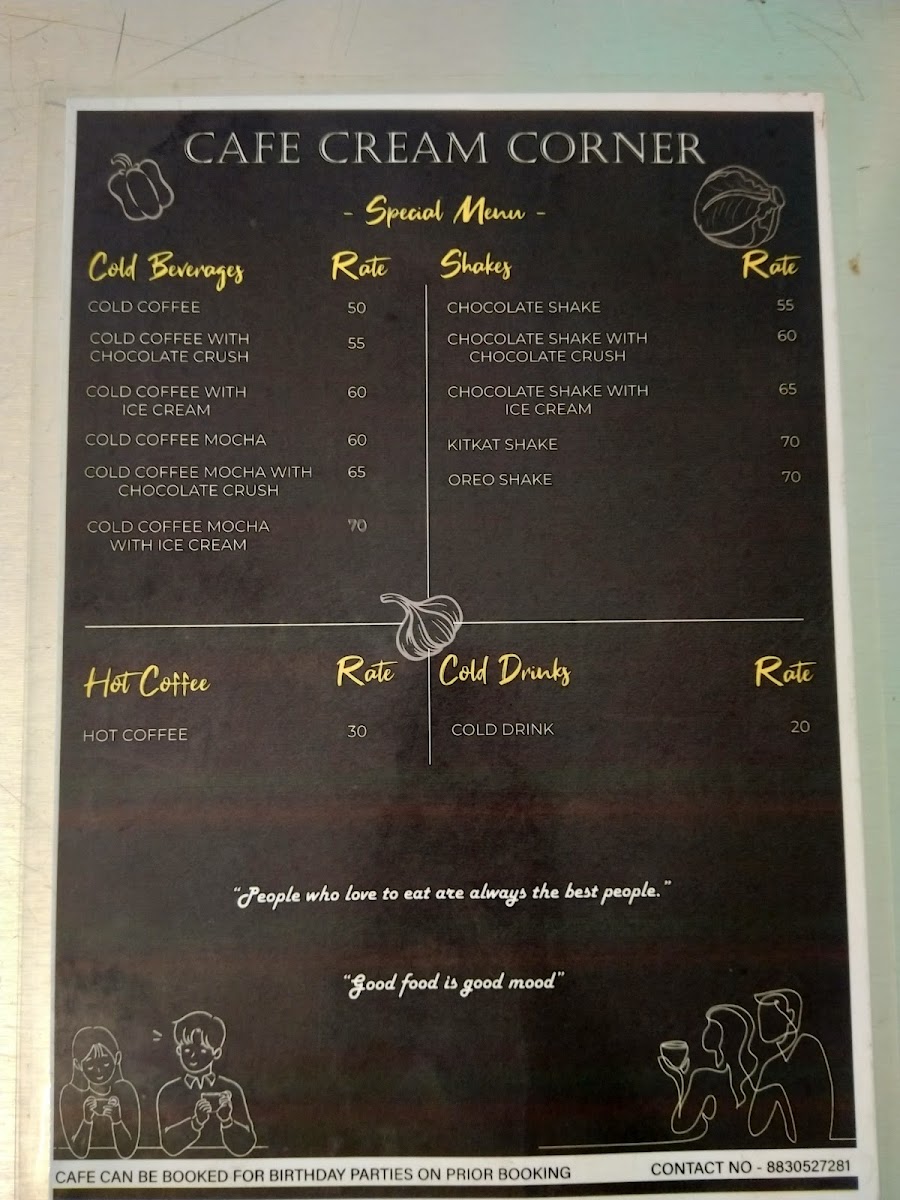 CAFE CREAM CORNER
- Special Menu -
Cold Beverages Rate
COLD COFFEE 50
COLD COFFEE WITH
CHOCOLATE CRUSH 55
COLD COFFEE WITH
ICE CREAM 60
COLD COFFEE MOCHA 60
COLD COFFEE MOCHA WITH 65
CHOCOLATE CRUSH
COLD COFFEE MOCHA 70
WITH ICE CREAM
Shakes Rate
CHOCOLATE SHAKE 55
CHOCOLATE SHAKE WITH 60
CHOCOLATE CRUSH
CHOCOLATE SHAKE WITH 65
ICE CREAM
KITKAT SHAKE 70
OREO SHAKE 70
Hot Coffee Rate
HOT COFFEE 30
Cold Drinks Rate
COLD DRINK 20
“People who love to eat are always the best people.”
“Good food is good mood”
CAFE CAN BE BOOKED FOR BIRTHDAY PARTIES ON PRIOR BOOKING CONTACT NO - 8830527281